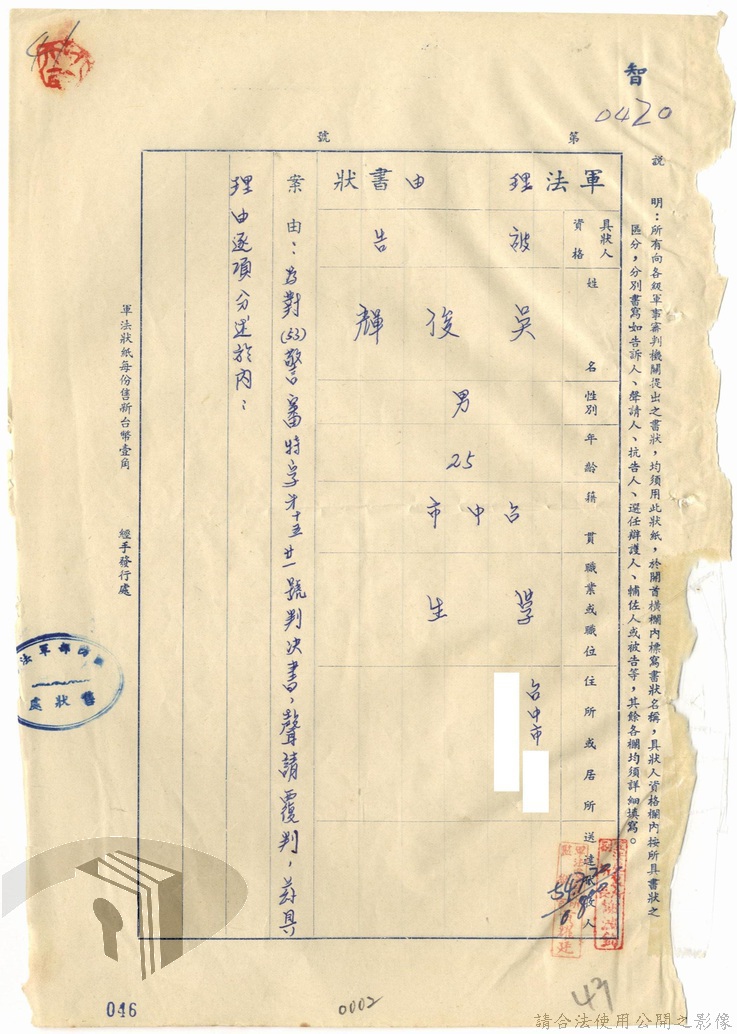 智
0420
第 號
說明：所有向各級軍事審判機關提出之書狀，均須用此狀紙，於開首橫欄內標寫書狀名稱，具狀人資格欄內按所具書狀之
區分，分別書寫如告訴人、聲請人、抗告人、選任辯護人、輔佐人或被告等，其餘各欄均須詳細填寫。
軍法理由書狀
具狀人資格
被告
姓名
吳俊輝
性別
男
年齡
25
籍貫
台中市
職業或職位
學生
住所或居所
台中市
送達
人
案由：為對(53)警審特字才十五廿一號判决書，聲請覆判，茲具
理由逐項分述於內：
軍法狀紙每份售新台幣壹角 經手發行處
防部軍法
售狀處
046
0002
49
請合法使用公開之影像